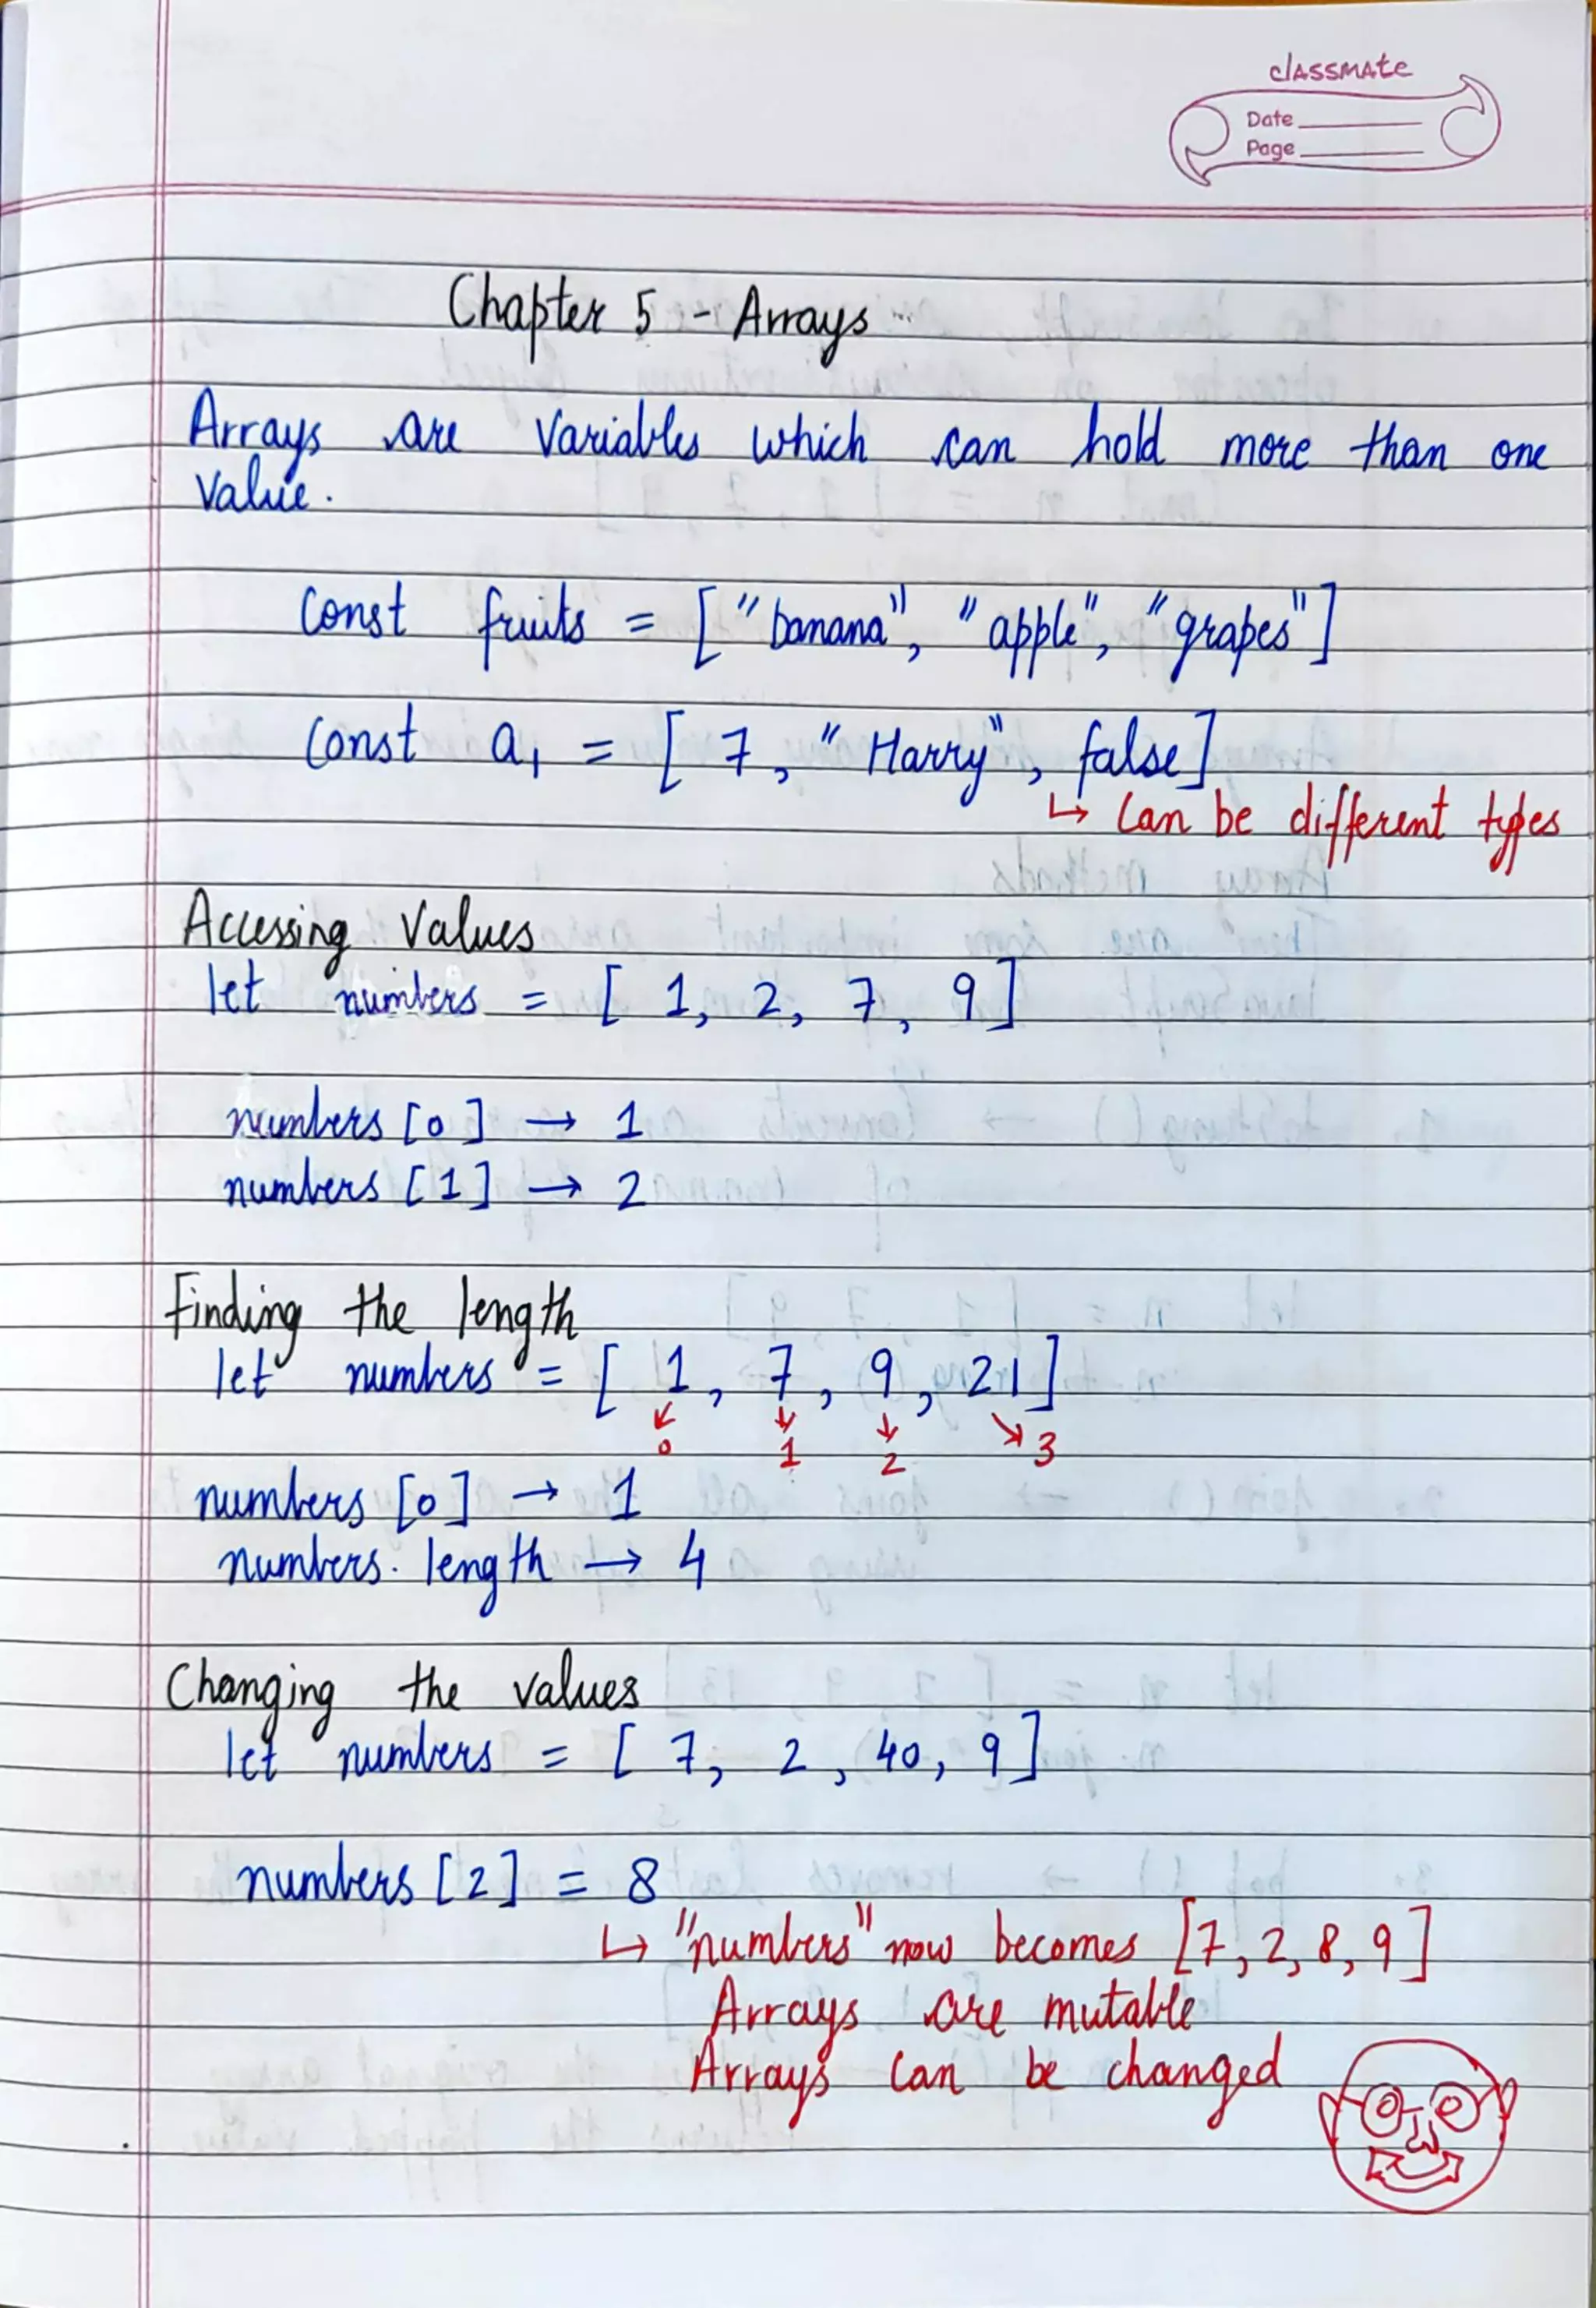 classmate
Date
Page
Chapter 5 - Arrays
Arrays are variables which can hold more than one
value.
Const fruits = ["banana", "apple", "grapes"]
Const a1 = [7, "Harry", false]
↳ Can be different types
Accessing Values
let numbers = [1, 2, 7, 9]
numbers [0] → 1
numbers [1] → 2
Finding the length
let numbers = [1, 7, 9, 21]
↙ ↓ ↓ ↘
0 1 2 3
numbers [0] → 1
numbers. length → 4
Changing the values
let numbers = [7, 2, 40, 9]
numbers [2] = 8
↳ "numbers" now becomes [7, 2, 8, 9]
Arrays are mutable
Arrays can be changed